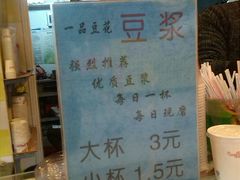 一品豆花 豆浆
强烈推荐
优质豆浆
每日一杯
每日现磨
大杯 3元
小杯 1.5元